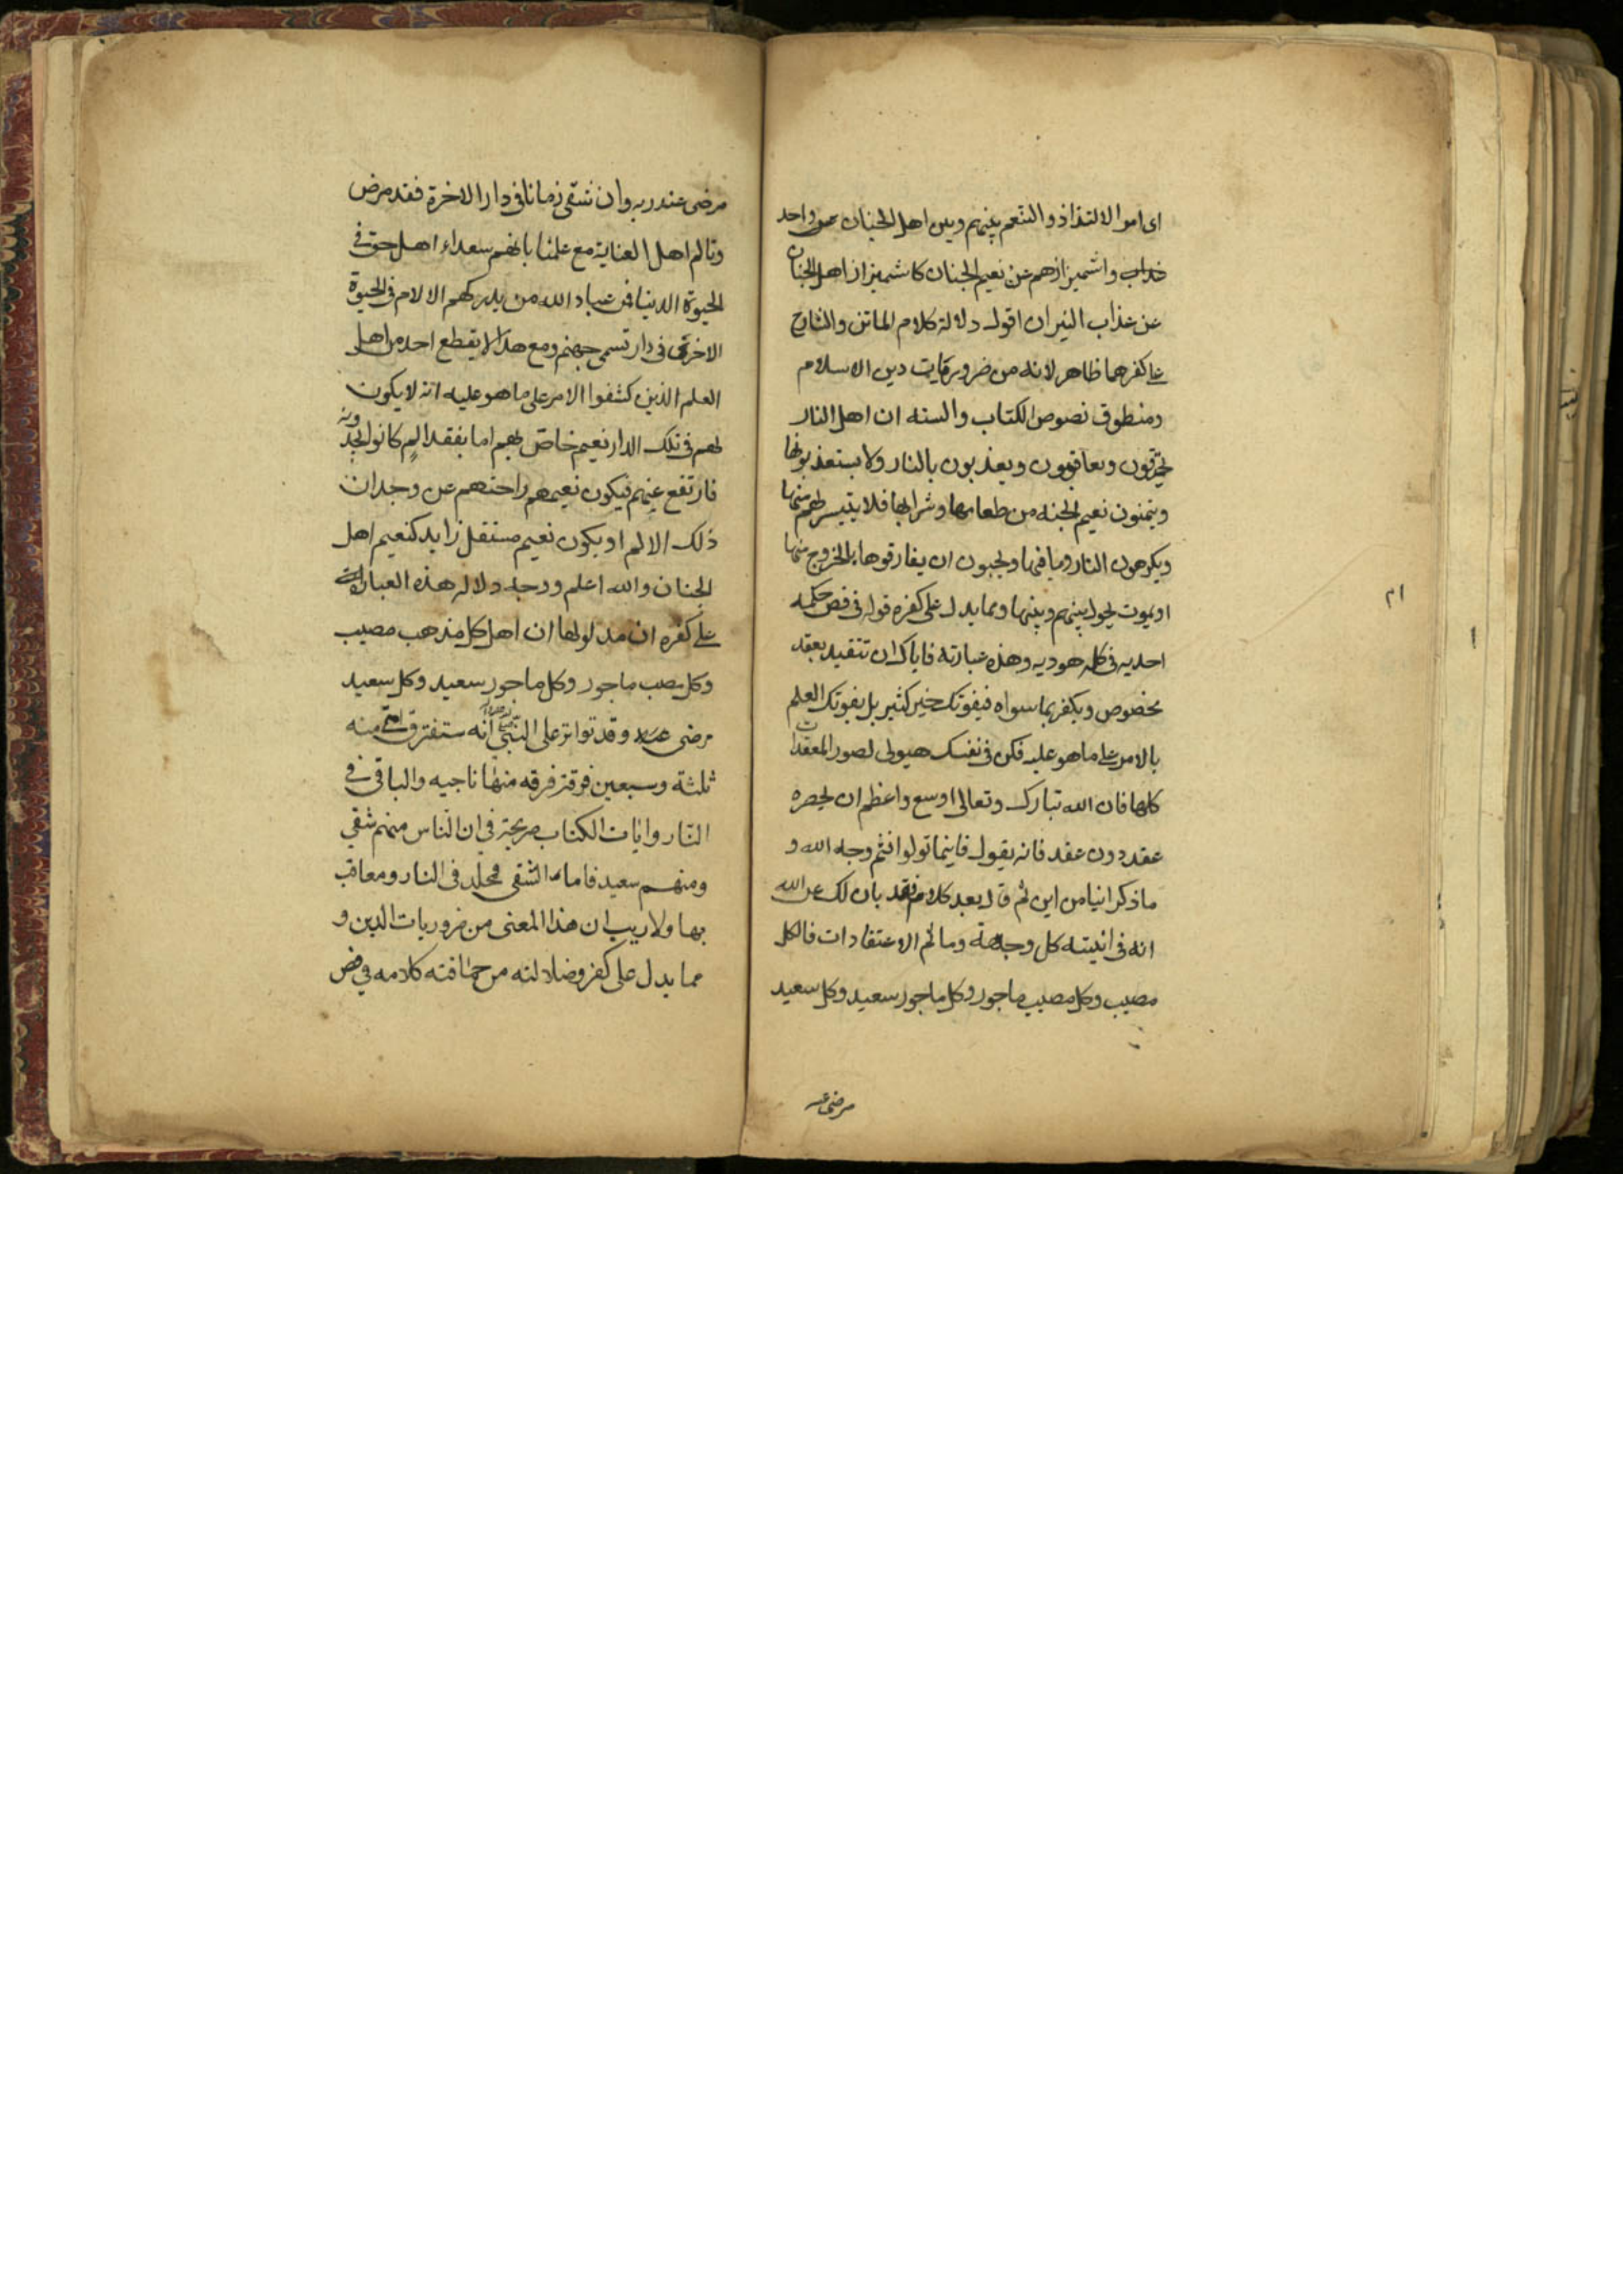 اى امر الالتذاذ والتنعم بينهم وبين اهل الجنان واحد
واشميزازهم عن نعيم الجنان كاشميزاز اهل الجنان
عن عذاب النيران اقول دلالة كلام الماتن والشارح
على كفرهما ظاهر لانه من ضروريات دين الاسلام
ومنطوق نصوص الكتاب والسنه ان اهل النار
يحرقون ويعاقبون ويعذبون بالنار ولا يستعذبونها
ويتمنون نعيم الجنه من طعامها وشرابها فلا يتيسر لهم منها
ويكرهون النار وما فيها ويحبون ان يفارقوها بالخروج منها
او بموت يحول بينهم وبينها ومما يدل على كفره قوله فى فص حكمه
احديه فى كلمه هوديه وهذه عبارته فاياك ان تتقيد بعقد
مخصوص وبكفر بما سواه فيفوتك خير كثير بل يفوتك العلم
بالامر على ما هو عليه فكن فى نفسك هيولى لصور المعتقدات
كلها فان الله تبارك وتعالى اوسع واعظم ان يحصره
عقد دون عقد فانه يقول فاينما تولوا فثم وجه الله و
ما ذكر اينا من اين ثم قال بعد كلام فقد بان لك عن الله
انه فى اينيته كل وجهة وما ثم الا اعتقادات فالكل
مصيب وكل مصيب ماجور وكل ماجور سعيد وكل سعيد
مرضى عند
٢١
مرضى عند ربه وان شقى زمانا فى دار الاخرة فقد مرض
وتالم اهل العناية مع علمنا بانهم سعداء اهل حق فى
الحيوة الدنيا فمن عباد الله من يدركهم الالام فى الحيوة
الاخرى فى دار تسمى جهنم ومع هذا لا يقطع احد من اهل
العلم الذين كشفوا الامر على ما هو عليه انه لا يكون
لهم فى تلك الدار نعيم خاص بهم اما بفقد الم كانوا يجدونه
فارتفع عنهم فيكون نعيمهم راحتهم عن وجدان
ذلك الالم او يكون نعيم مستقل زايد كنعيم اهل
الجنان والله اعلم ووجه دلاله هذه العبارات
على كفره ان مدلولها ان اهل كل مذهب مصيب
وكل مصيب ماجور وكل ماجور سعيد وكل سعيد
مرضى عنه وقد تواتر على النبى انه ستفترق امته
ثلثة وسبعين فرقة فرقه منها ناجيه والباقى فى
النار وايات الكتاب صريحة فى ان الناس منهم شقى
ومنهم سعيد فاما الشقى مخلد فى النار ومعاقب
بها ولا ريب ان هذا المعنى من ضروريات الدين و
مما يدل على كفره وضلالته من حماقته كلامه فى فص